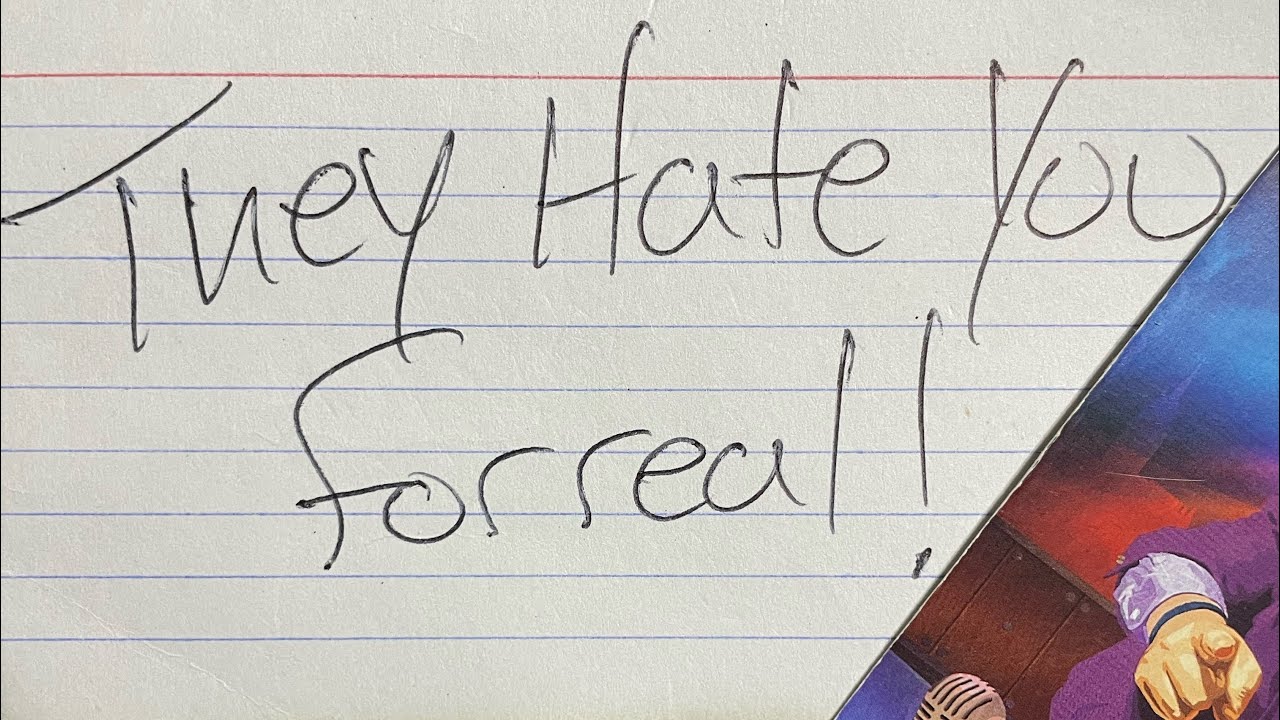 They Hate You
forreal!